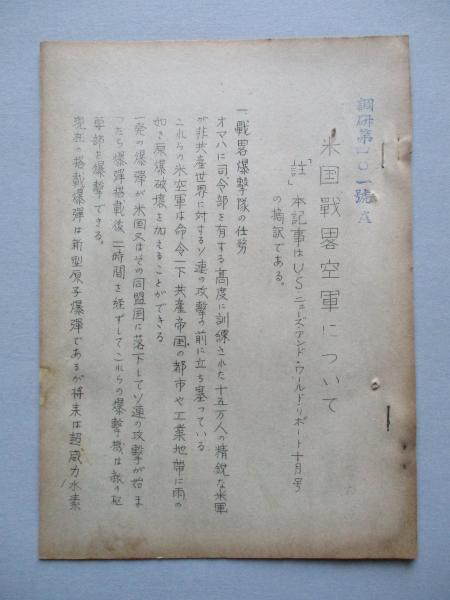 調研第一〇一號A
米国戰畧空軍について
「註」本記事はUSニューズアンド・ワールドリポート十月号
の摘訳である。
一戰畧爆撃隊の任務
オマハに司令部を有する高度に訓練された十五万人の精鋭な米軍
が非共産世界に対するソ連の攻撃の前に立ち塞っている
これらの米空軍は命令一下共産帝国の都市や工業地帶に雨の
如き原爆破壊を加えることができる
一発の爆彈が米国又はその同盟国に落下してソ連の攻撃が始ま
ったら爆彈搭載後二時間を経ずしてこれらの爆撃機は敵の心
臓部を爆撃できる。
現在の搭載爆彈は新型原子爆彈であるが将来は超威力水素